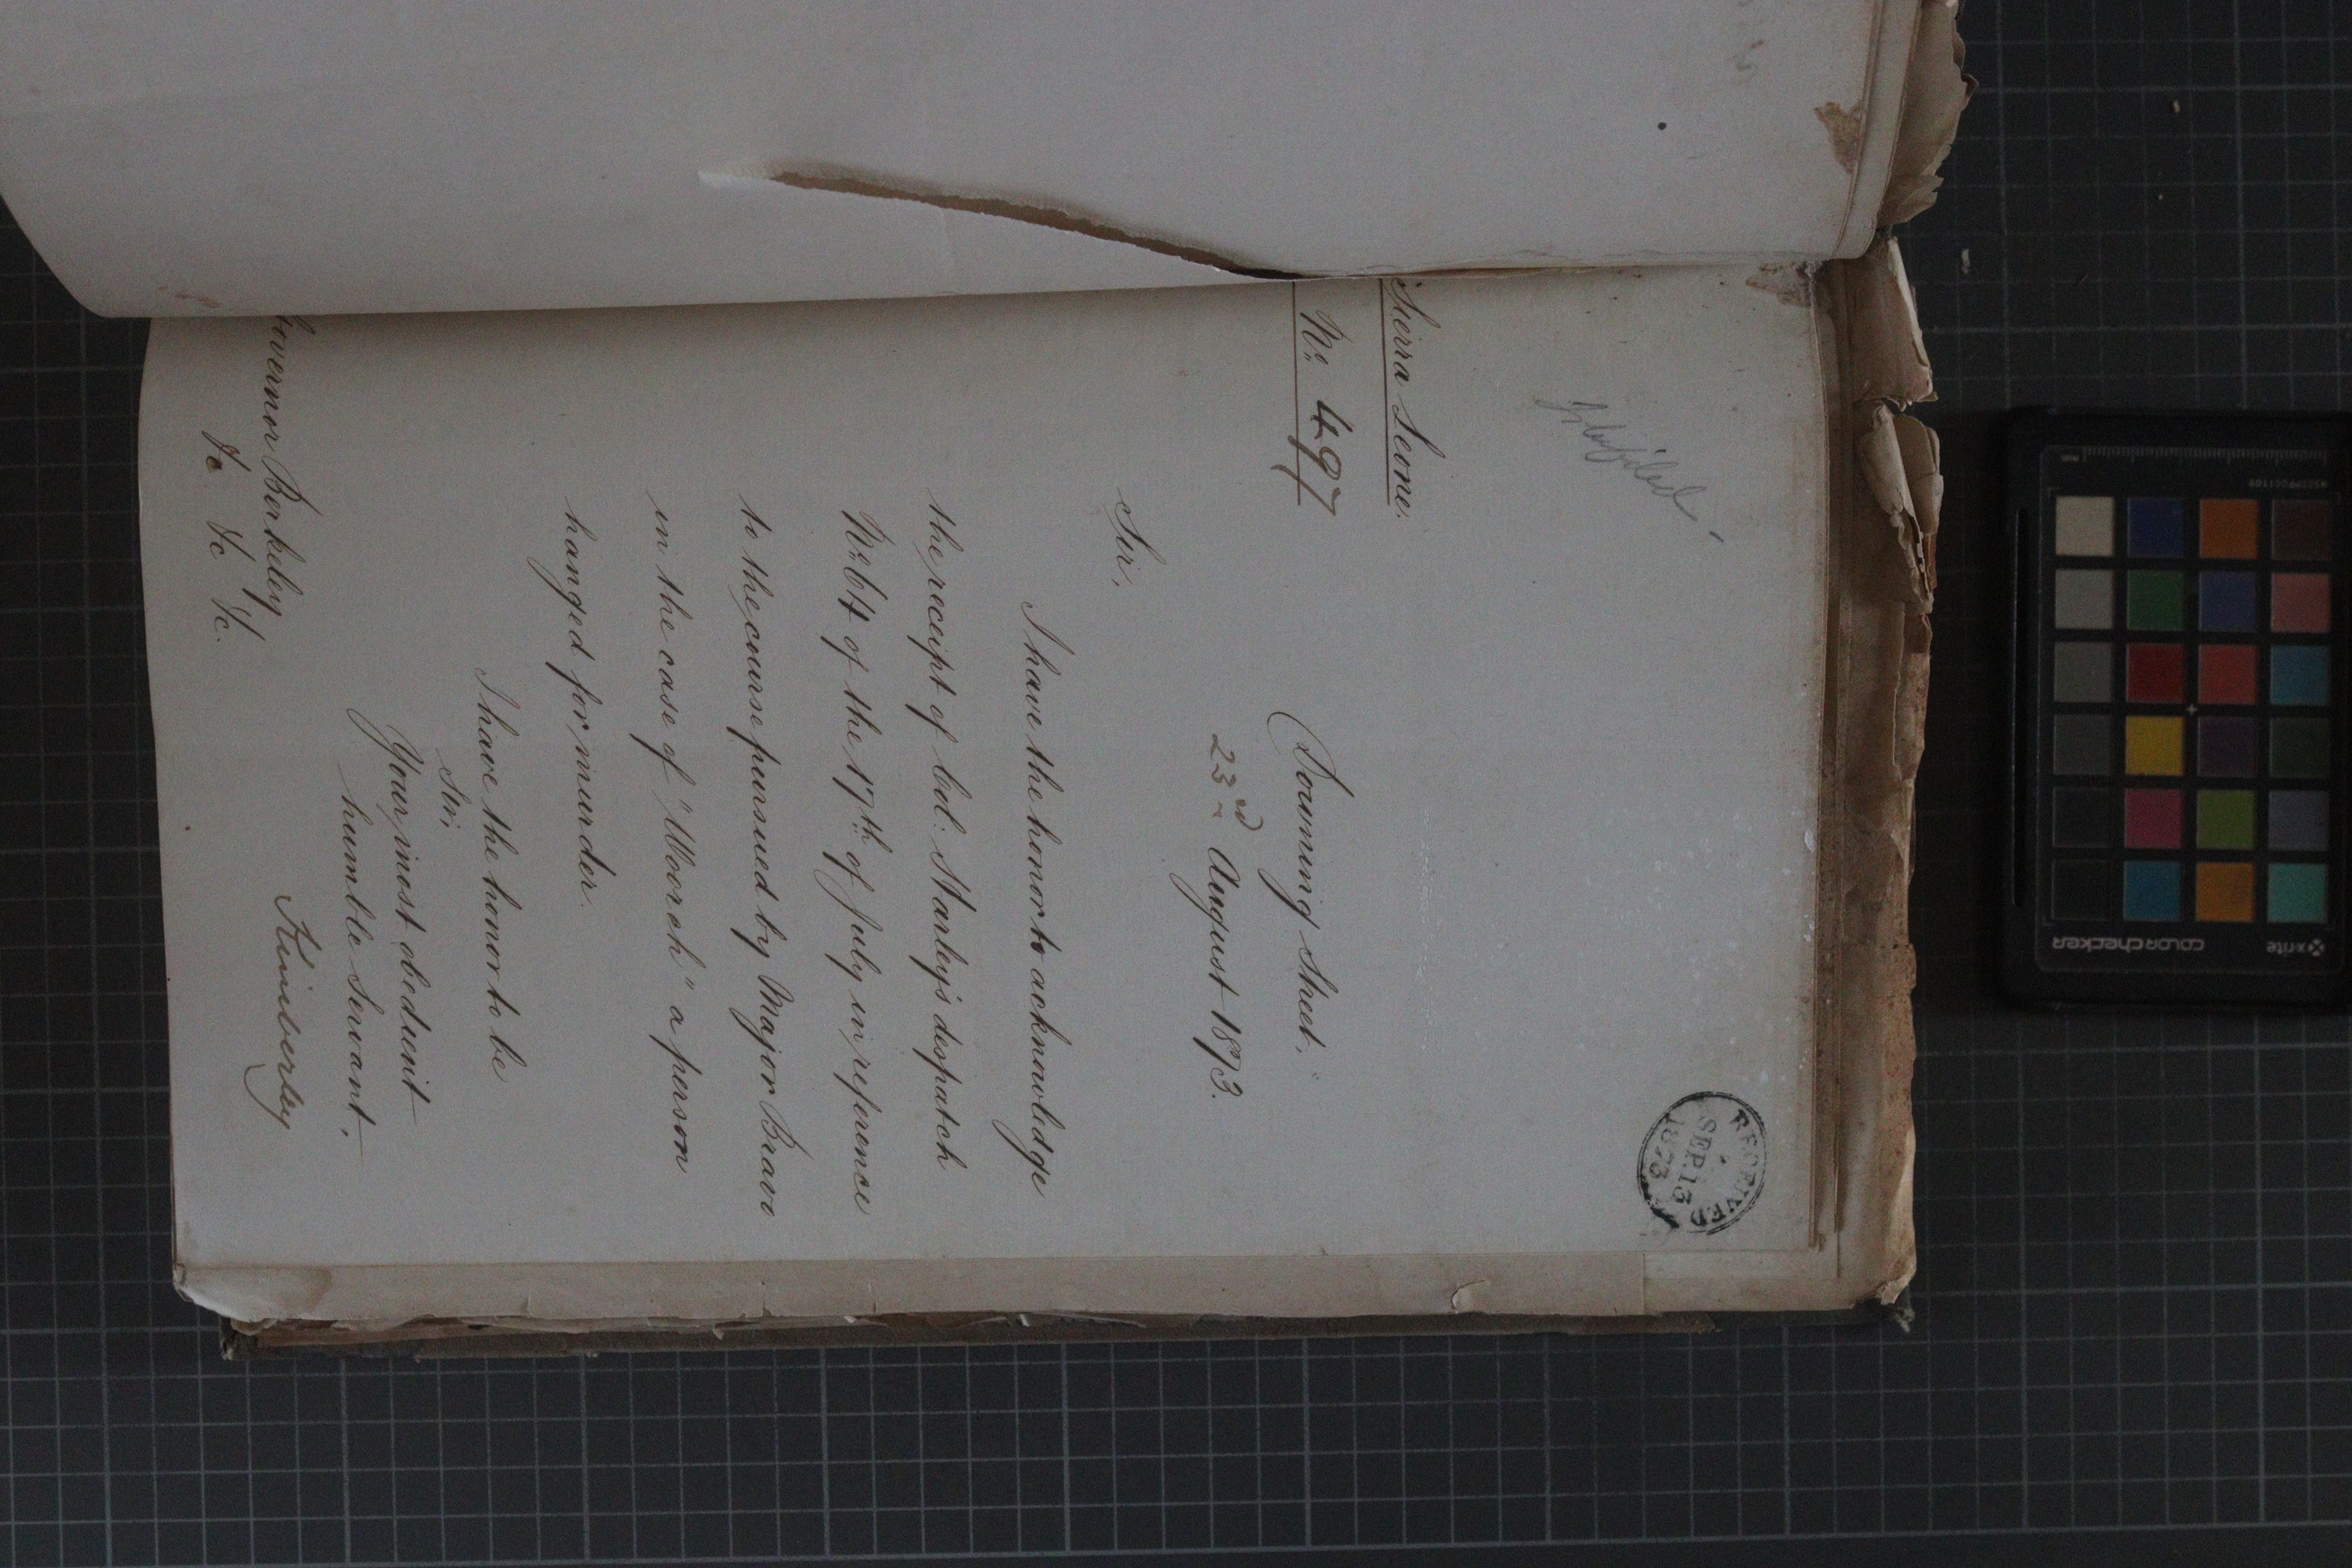 RECEIVED
SEP. 13
1873
Sierra Leone.
No. 497
Downing Street,
23rd August 1873.
Sir,
I have the honor to acknowledge
the receipt of Col: Stanley's despatch
No. 64 of the 17th of July in reference
to the course pursued by Major Bravo
in the case of "Woorch" a person
hanged for murder.
I have the honor to be
Sir,
Your most obedient
humble Servant,
Kimberley
Governor Berkeley
&c &c &c.
x-rite
colorchecker
MSCCPPCC1109